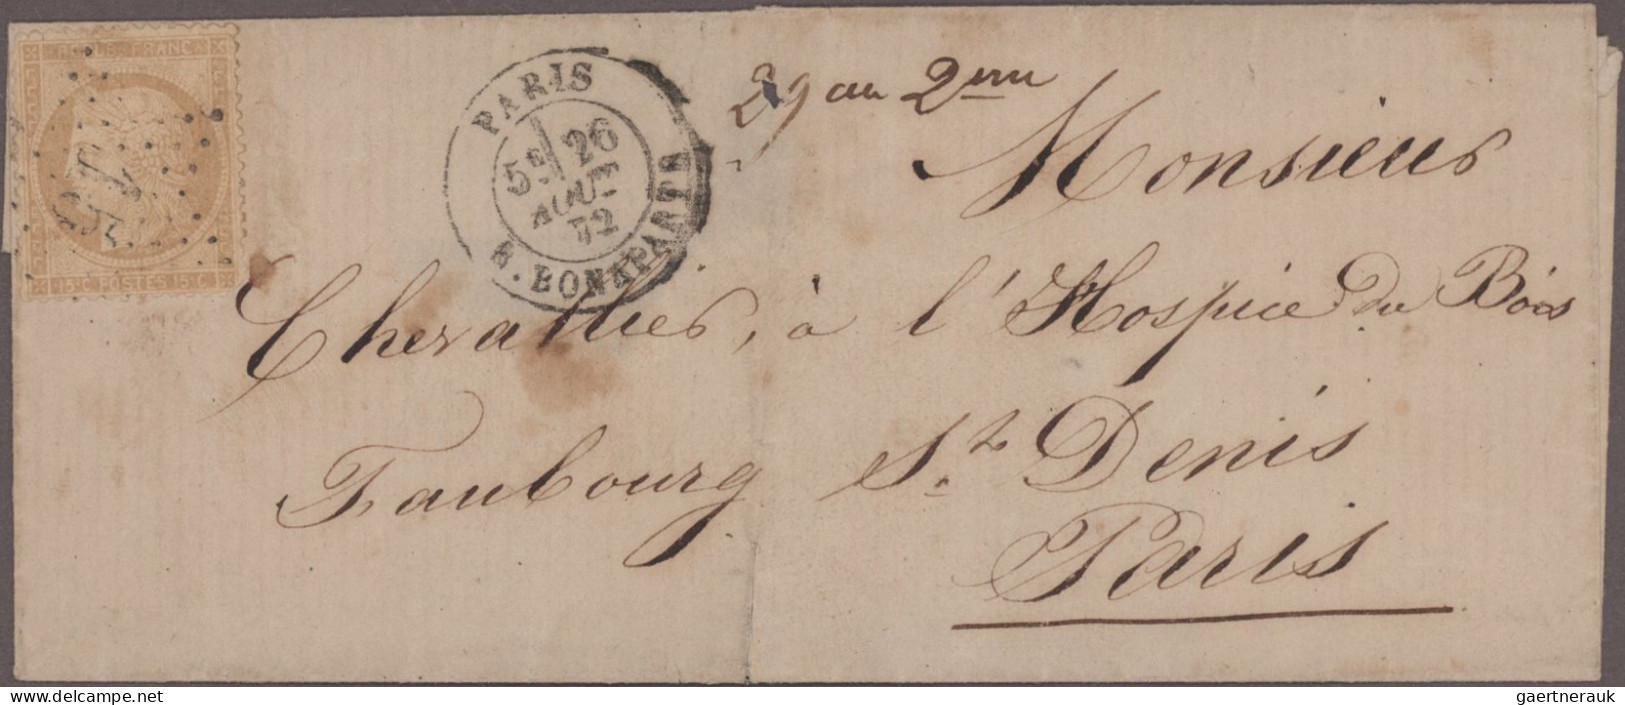 REPUB. FRANC.
15 C. POSTES 15 C.
PARIS
5E 26
AOUT
72
R. BONAPARTE
29 au 2eme
Monsieur
Chevallier, à l'Hospice du Bois
Faubourg St Denis
Paris
www.delcampe.net
gaertnerauk